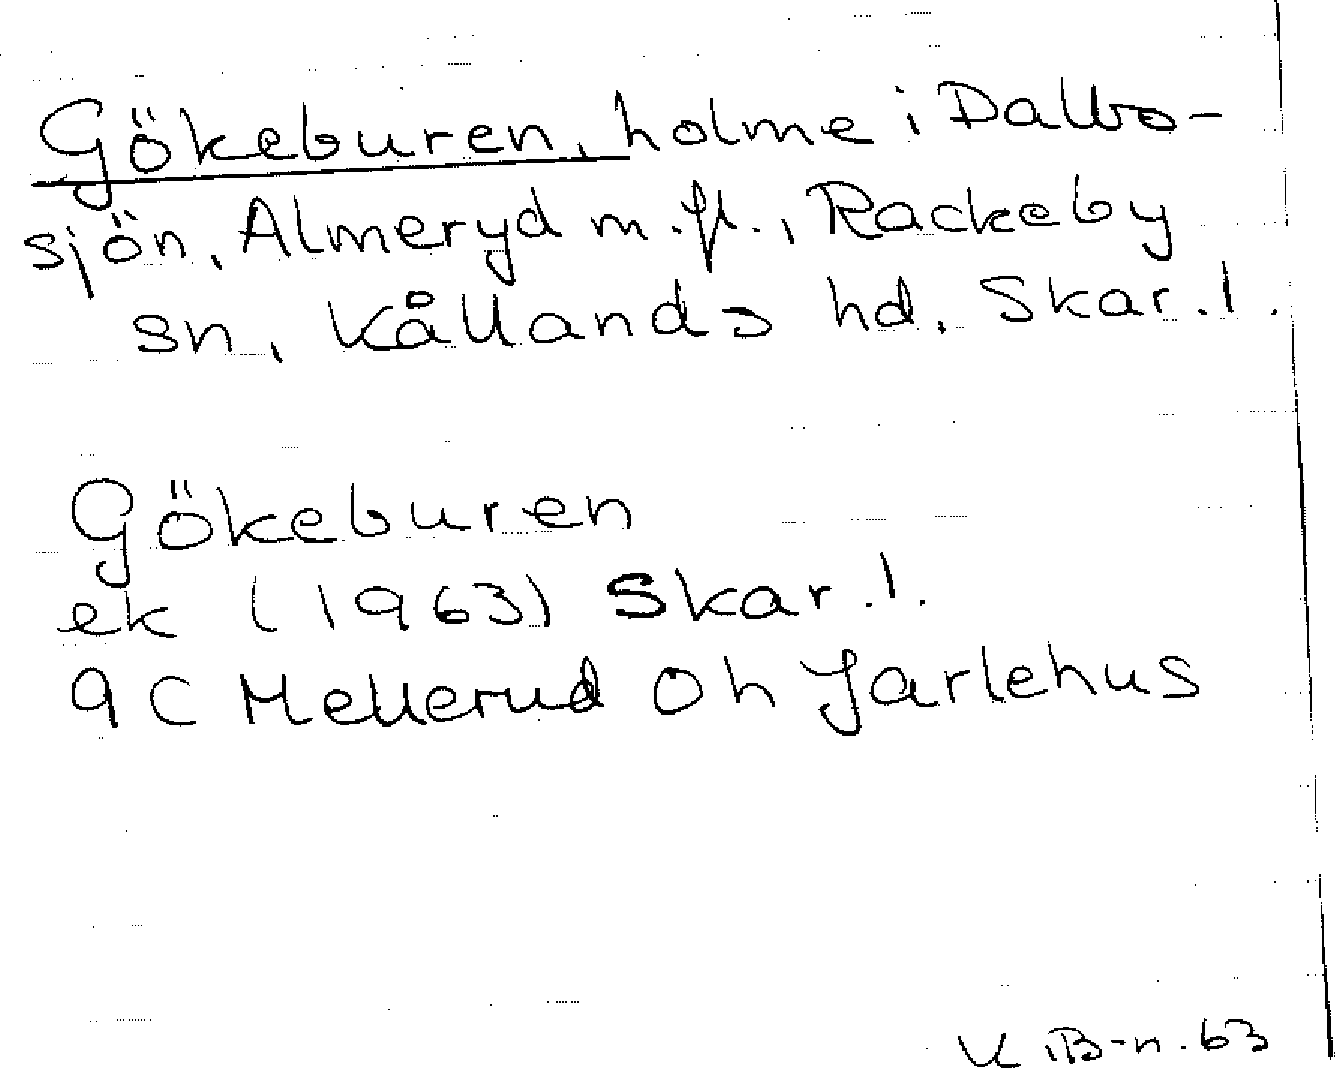 Gökeburen, holme i Dalbo-
sjön, Almeryd m.fl., Rackeby
sn, Kållands hd, Skar. l.
Gökeburen
ek (1963) Skar. l.
9C Mellerud 0h Jarlehus
B-n. 63